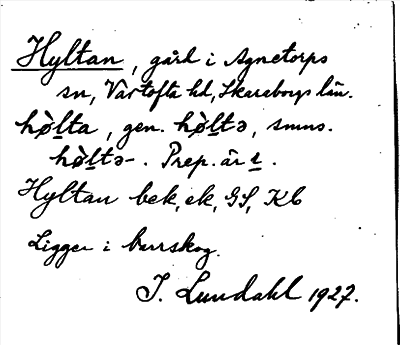 Hyltan, gård i Agnetorps
sn, Vartofta hd, Skaraborgs län.
hø̀lta, gen. hø̀ltə, smns.
hø̀ltə-. Prep. är ɩ.
Hyltan bek, ek, GS, Kb
Ligger i barrskog.
I. Lundahl 1927.